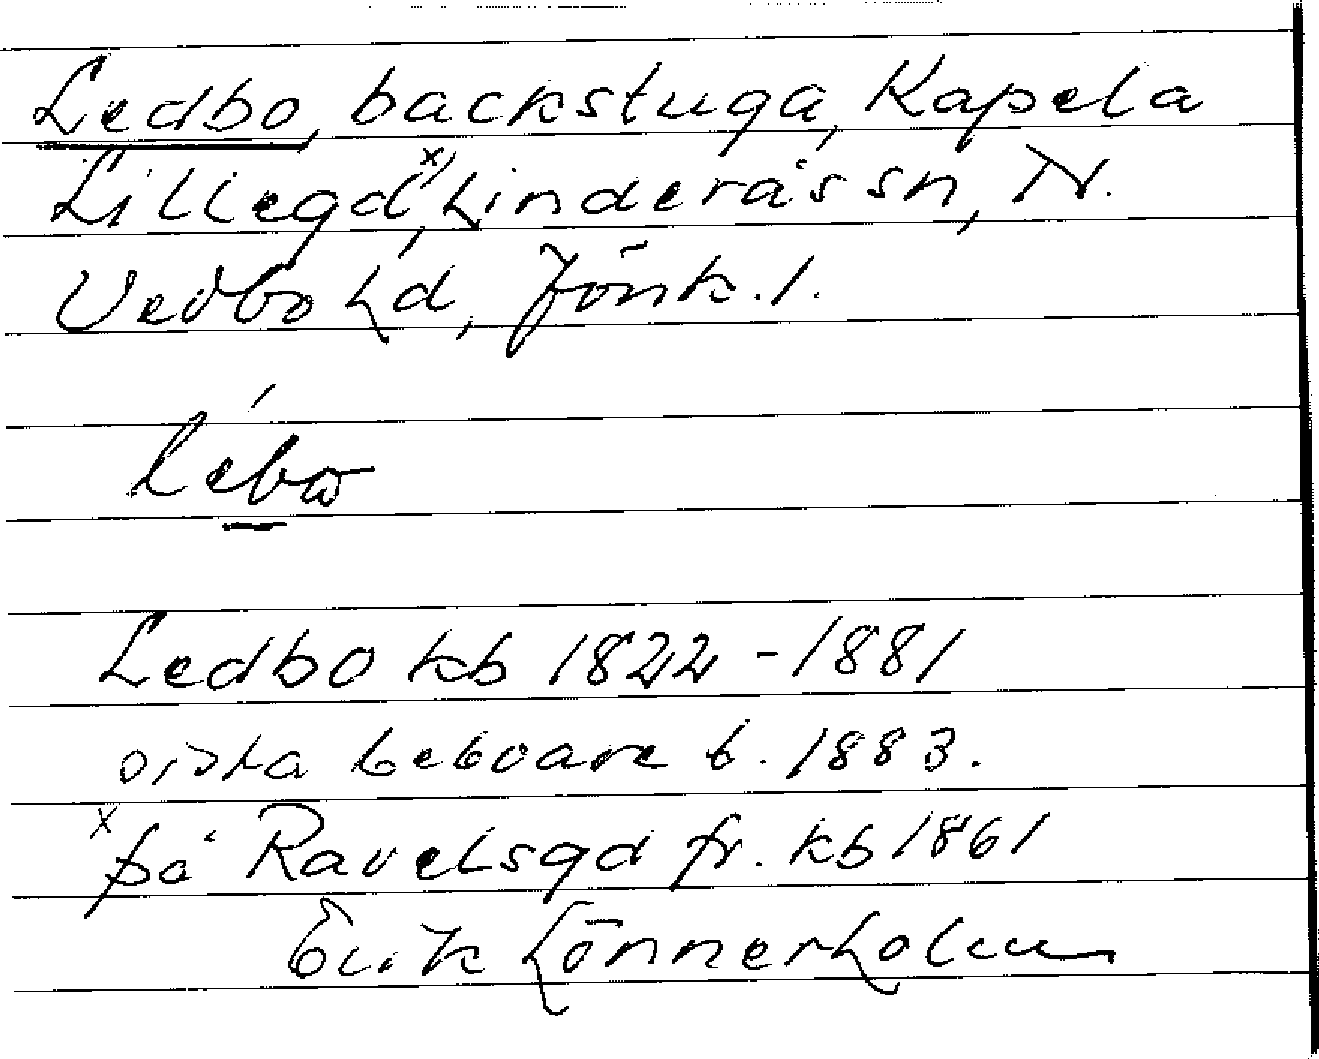 Ledbo, backstuga, Kapela
Lillegd x), Linderås sn, N.
Vedbo hd, Jönk. l.
lebω
Ledbo kb 1822-1881
sista beboare t. 1883.
x på Ravelsgd fr. kb 1861
Erik Lönnerholm